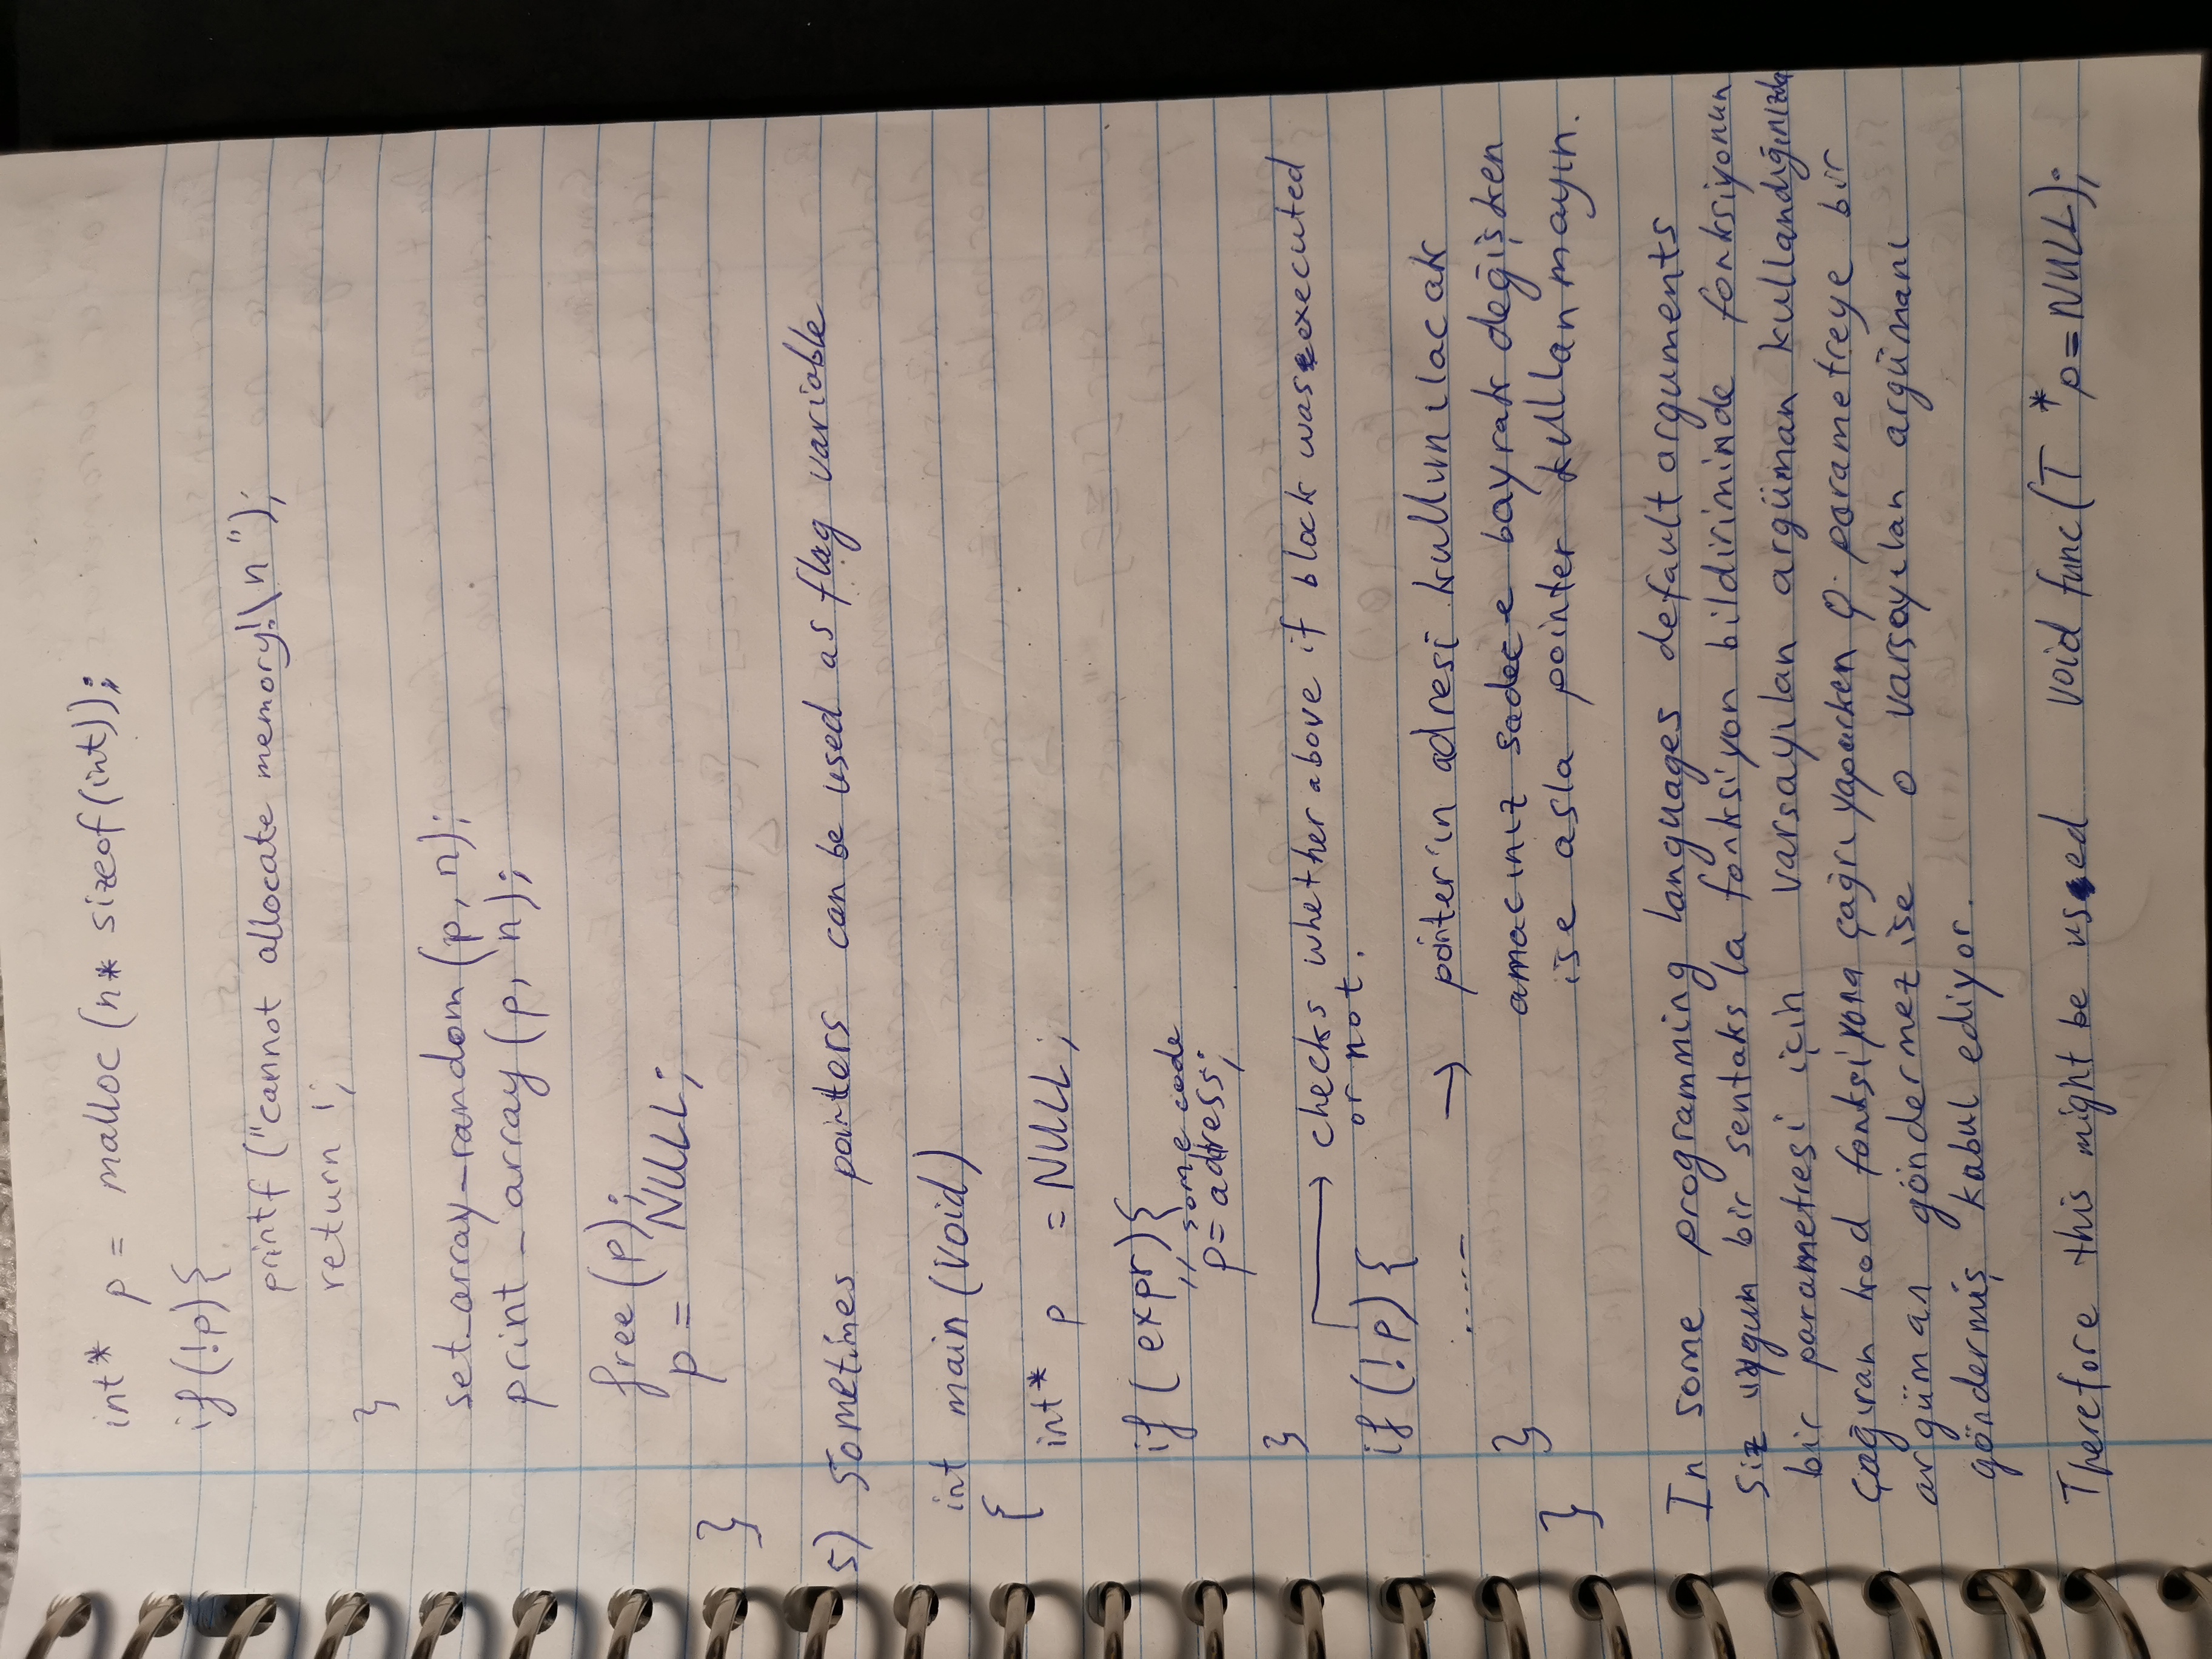 int* p = malloc (n* sizeof(int));
if(!p){
printf ("cannot allocate memory!\n");
return 1;
}
set_array_random (p, n);
print_array (p, n);
free (p);
p = NULL;
}
5) Sometimes pointers can be used as flag variable
int main (void)
{
int* p = NULL;
if ( expr){
// some code
p = adress;
}
→ checks whether above if block was executed
or not.
if (!p) {
..... → pointer'ın adresi kullanılacak
}
amacınız sadece bayrak değişken
}
ise asla pointer kullanmayın.
In some programming languages default arguments
siz uygun bir sentaks la fonksiyon bildiriminde fonksiyonun
bir parametresi için varsayılan argüman kullandığınızda
çağıran kod fonksiyona çağrı yaparken o parametreye bir
argüman göndermez ise o varsayılan argümanı
göndermiş kabul ediyor.
Therefore this might be used void func(T *p=NULL);